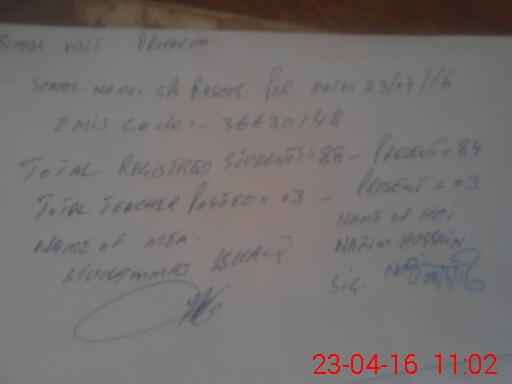 SCHOOL VISIT PROFARMA
SCHOOL NAME- Gh RASOOL Par. Date 23/04/16
EMIS Code:- 36630148
TOTAL REGISTRED STUDENTS=88- PRESENT=84
TOTAL TEACHER POSTED=03 - PRESENT=03
NAME OF MEA- NAME OF HOI.
MUHAMMAD ISHAQ NAZIM HUSSAIN.
SIG.
23-04-16 11:02